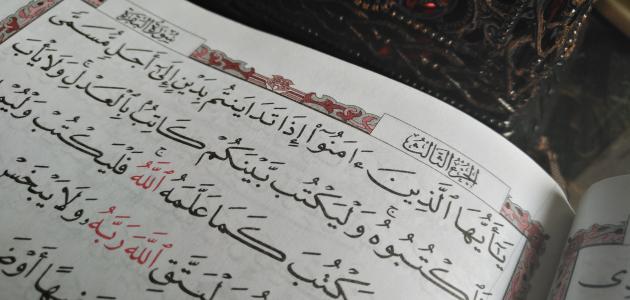 سُورَةُ البَقَرَةِ
الجُزْءُ الثَّالِثُ
يَٰٓأَيُّهَا ٱلَّذِينَ ءَامَنُوٓا۟ إِذَا تَدَايَنتُم بِدَيْنٍ إِلَىٰٓ أَجَلٍ مُّسَمًّى
فَٱكْتُبُوهُ ۚ وَلْيَكْتُب بَّيْنَكُمْ كَاتِبٌۢ بِٱلْعَدْلِ ۚ وَلَا يَأْبَ
يَكْتُبَ كَمَا عَلَّمَهُ ٱللَّهُ ۚ فَلْيَكْتُبْ
ٱللَّهَ رَبَّهُۥ وَلَا يَبْخَسْ